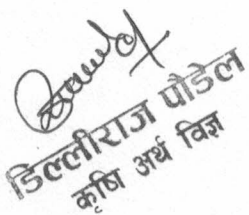 डिल्लीराज पौडेल
कृषि अर्थ विज्ञ